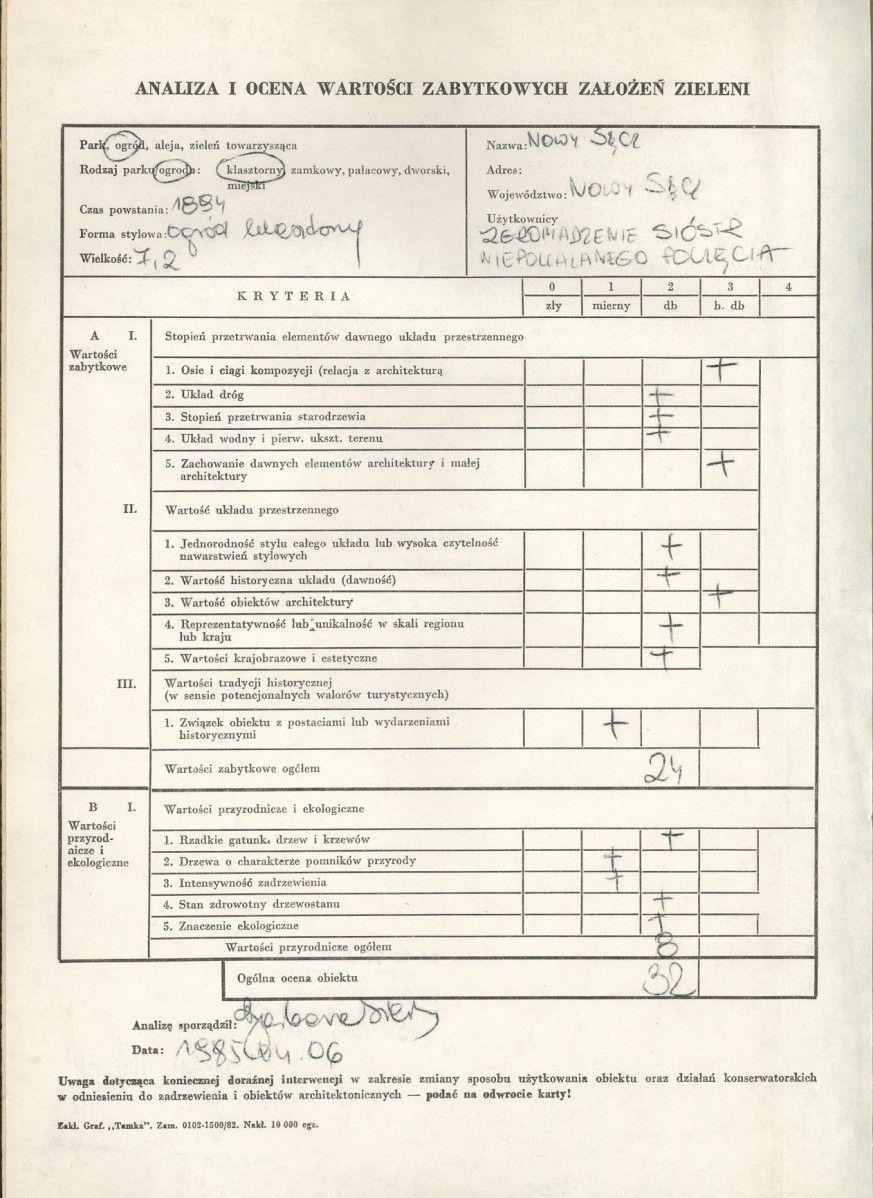 ANALIZA I OCENA WARTOŚCI ZABYTKOWYCH ZAŁOŻEŃ ZIELENI
Park, ogród, aleja, zieleń towarzysząca
Rodzaj parku/ogrodu: klasztorny, zamkowy, pałacowy, dworski,
miejski
Czas powstania: 1884
Forma stylowa: ogród
Wielkość: 7,2
Nazwa: NOWY SĄCZ
Adres:
Województwo: NOWY SĄCZ
Użytkownicy
ZGROMADZENIE SIÓSTR
NIEPOKALANEGO POCZĘCIA
KRYTERIA
0 1 2 3 4
zły mierny db b. db
A I. Stopień przetrwania elementów dawnego układu przestrzennego
Wartości
zabytkowe
1. Osie i ciągi kompozycji (relacja z architekturą +
2. Układ dróg +
3. Stopień przetrwania starodrzewia +
4. Układ wodny i pierw. ukszt. terenu +
5. Zachowanie dawnych elementów architektury i małej
architektury +
II. Wartość układu przestrzennego
1. Jednorodność stylu całego układu lub wysoka czytelność
nawarstwień stylowych +
2. Wartość historyczna układu (dawność) +
3. Wartość obiektów architektury +
4. Reprezentatywność lub unikalność w skali regionu
lub kraju +
5. Wartości krajobrazowe i estetyczne +
III. Wartości tradycji historycznej
(w sensie potencjonalnych walorów turystycznych)
1. Związek obiektu z postaciami lub wydarzeniami
historycznymi +
Wartości zabytkowe ogółem 24
B I. Wartości przyrodnicze i ekologiczne
Wartości
przyrod-
nicze i
ekologiczne
1. Rzadkie gatunki drzew i krzewów +
2. Drzewa o charakterze pomników przyrody +
3. Intensywność zadrzewienia +
4. Stan zdrowotny drzewostanu +
5. Znaczenie ekologiczne +
Wartości przyrodnicze ogółem 8
Ogólna ocena obiektu 32
Analizę sporządził:
Data: 1985.04.06
Uwaga dotycząca koniecznej doraźnej interwencji w zakresie zmiany sposobu użytkowania obiektu oraz działań konserwatorskich
w odniesieniu do zadrzewienia i obiektów architektonicznych — podać na odwrocie karty!
Zakł. Graf. „Tamka". Zam. 0102-1500/82. Nakł. 10 000 egz.